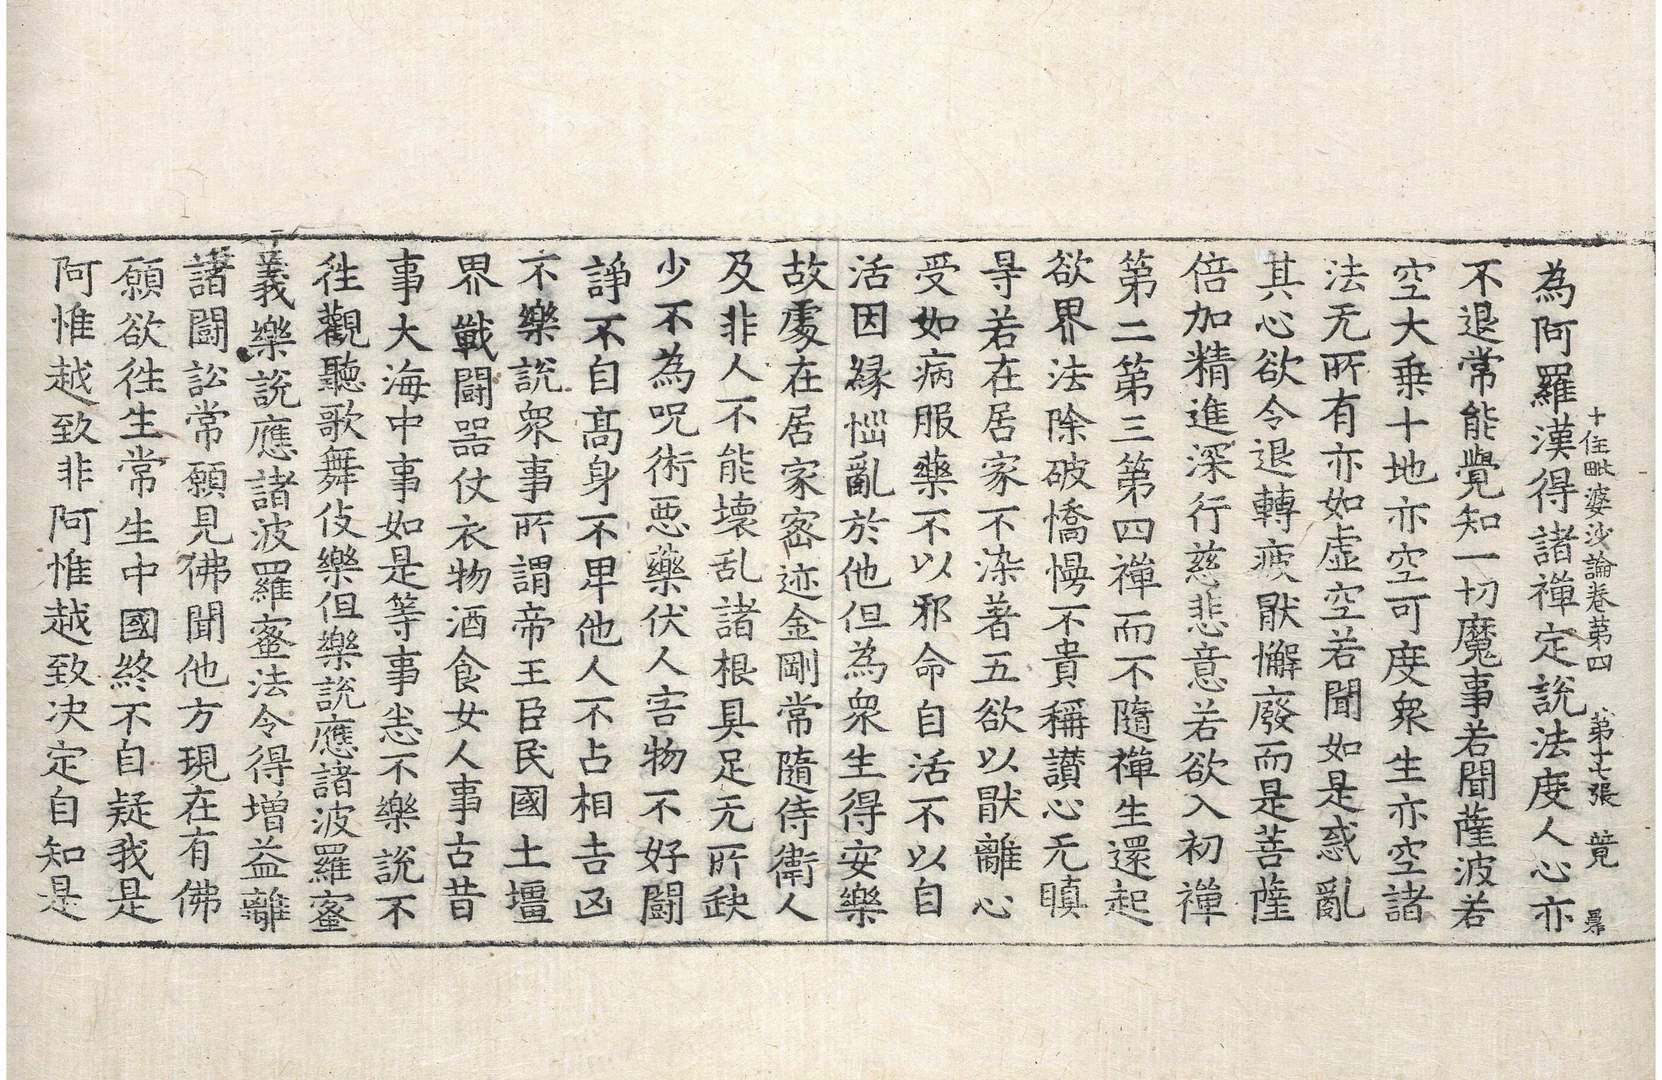 十住毗婆沙論卷苐四　第十七張　竟
為阿羅漢得諸禪定說法度人心亦
不退常能覺知一切魔事若聞薩波若
空大乗十地亦空可度衆生亦空諸
法无所有亦如虚空若聞如是惑亂
其心欲令退轉疲猒懈廢而是菩薩
倍加精進深行慈悲意若欲入初禪
第二第三第四禪而不隨禪生還起
欲界法除破憍慢不貴稱讃心无瞋
㝵若在居家不染著五欲以猒離心
受如病服藥不以邪命自活不以自
活因縁惱亂於他但為衆生得安樂
故處在居家宻迹金剛常隨侍衛人
及非人不能壊乱諸根具足无所缺
少不為呪術惡藥伏人害物不好鬪
諍不自髙身不卑他人不占相吉凶
不樂說衆事所謂帝王臣民國土壃
界戰鬪器仗衣物酒食女人事古昔
事大海中事如是等事悉不樂說不
徃觀聽歌舞伎樂但樂說應諸波羅蜜
義樂說應諸波羅蜜法令得増益離
諸鬪訟常願見佛聞他方現在有佛
願欲徃生常生中國終不自疑我是
阿惟越致非阿惟越致决定自知是